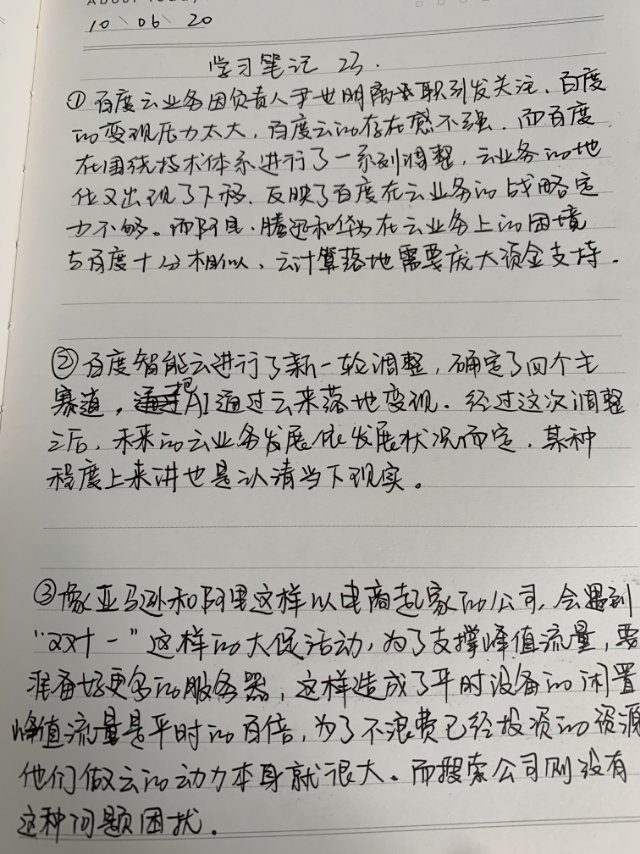 10\06\20
学习笔记 23.
①百度云业务因负责人尹世明离职引发关注、百度
的变现压力太大,百度云的存在感不强.而百度
在围绕技术体系进行了一系列调整,云业务的地
位又出现了下移.反映了百度在云业务的战略定
力不够。而阿里、腾迅和华为在云业务上的困境
与百度十分相似、云计算落地需要庞大资金支持.
②百度智能云进行了新一轮调整,确定了四个主
赛道,把AI通过云来落地变现.经过这次调整
之后,未来的云业务发展依发展状况而定,某种
程度上来讲也是认清当下现实。
③像亚马逊和阿里这样以电商起家的公司,会遇到
“双十一”这样的大促活动,为了支撑峰值流量,要
准备好更多的服务器,这样造成了平时设备的闲置
峰值流量是平时的百倍,为了不浪费已经投资的资源
他们做云的动力本身就很大。而搜索公司则没有
这种问题困扰。